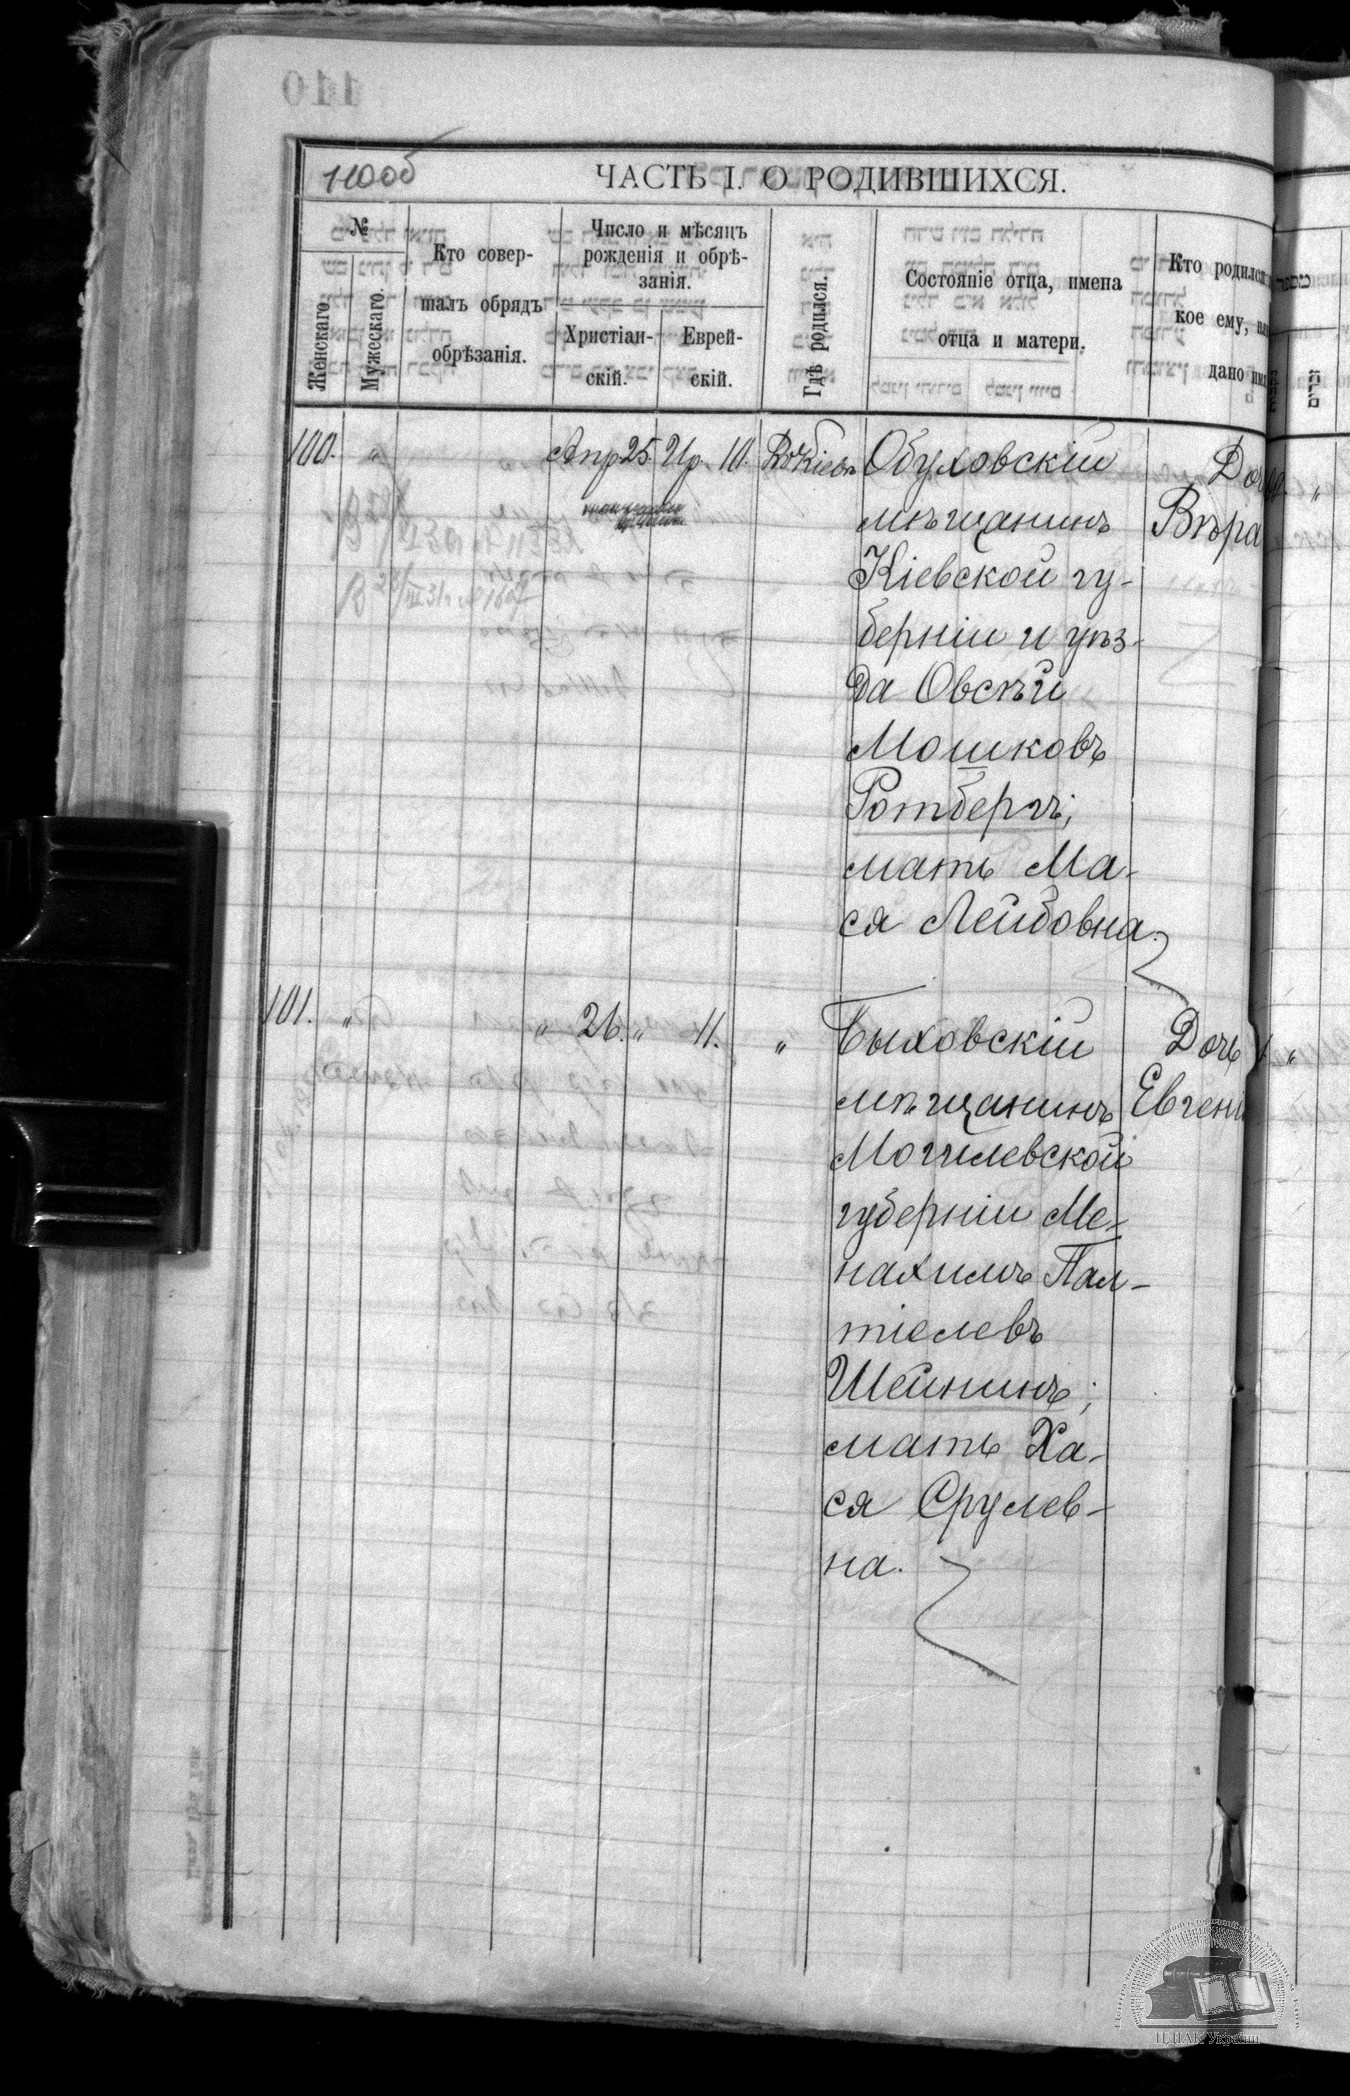 110об
ЧАСТЬ I. О РОДИВШИХСЯ.
№
Женскаго.
Мужескаго.
Кто совер-
шалъ обрядъ
обрѣзанія.
Число и мѣсяцъ
рожденія и обрѣ-
занія.
Христіан-
скій.
Еврей-
скій.
Гдѣ родился.
Состояніе отца, имена
отца и матери.
Кто родился
кое ему,
дано
100. " Апр 25. Ир. 10. Въ Кіевѣ Обуховскій
мѣщанинъ
Кіевской гу-
берніи и уѣз-
да Овсѣй
Мошковъ
Ротбергъ;
мать Ма-
ся Лейбовна.
Дочь
Вѣра
101. " " 26. " 11. " Быховскій
мѣщанинъ
Могилевской
губерніи Ме-
нахимъ Пал-
тіелевъ
Шейнинъ;
мать Ха-
ся Срулев-
на.
Дочь
Евгені
ЦДІАК України